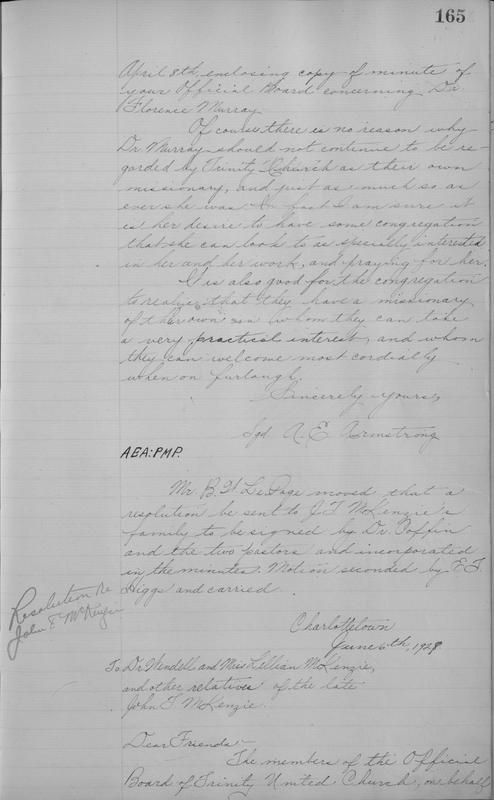 165
April 8th, enclosing copy of minute of
your Official Board concerning Dr.
Florence Murray.
Of course there is no reason why
Dr Murray should not continue to be re-
garded by Trinity Church as their own
missionary, and just as much so as
ever she was. In fact I am sure it
is her desire to have some congregation
that she can look to as specially interested
in her and her work, and praying for her.
It is also good for the congregation
to realize that they have a missionary
of their own in whom they can take
a very practical interest, and whom
they can welcome most cordially
when on furlough.
Sincerely yours,
Sgd. A. E. Armstrong
AEA:PMP.
Mr. B. W. LePage moved that a
resolution be sent to J. T. McKenzie's
family to be signed by Dr. Poffin
and the two pastors and incorporated
in the minutes. Motion seconded by E. T.
Higgs and carried.
Resolution Re
John T. McKenzie
Charlottetown
June 6th, 1928
To Dr Wendell and Miss Lillian McKenzie,
and other relatives of the late
John T. McKenzie.
Dear Friends-
The members of the Official
Board of Trinity United Church, on behalf